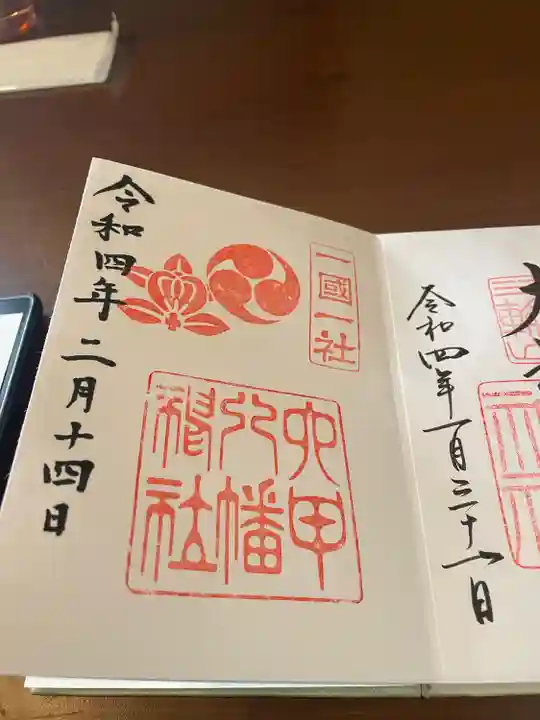 一國一社
六甲
八幡
神社
令和四年二月十四日
大
令和四年一月三十一日